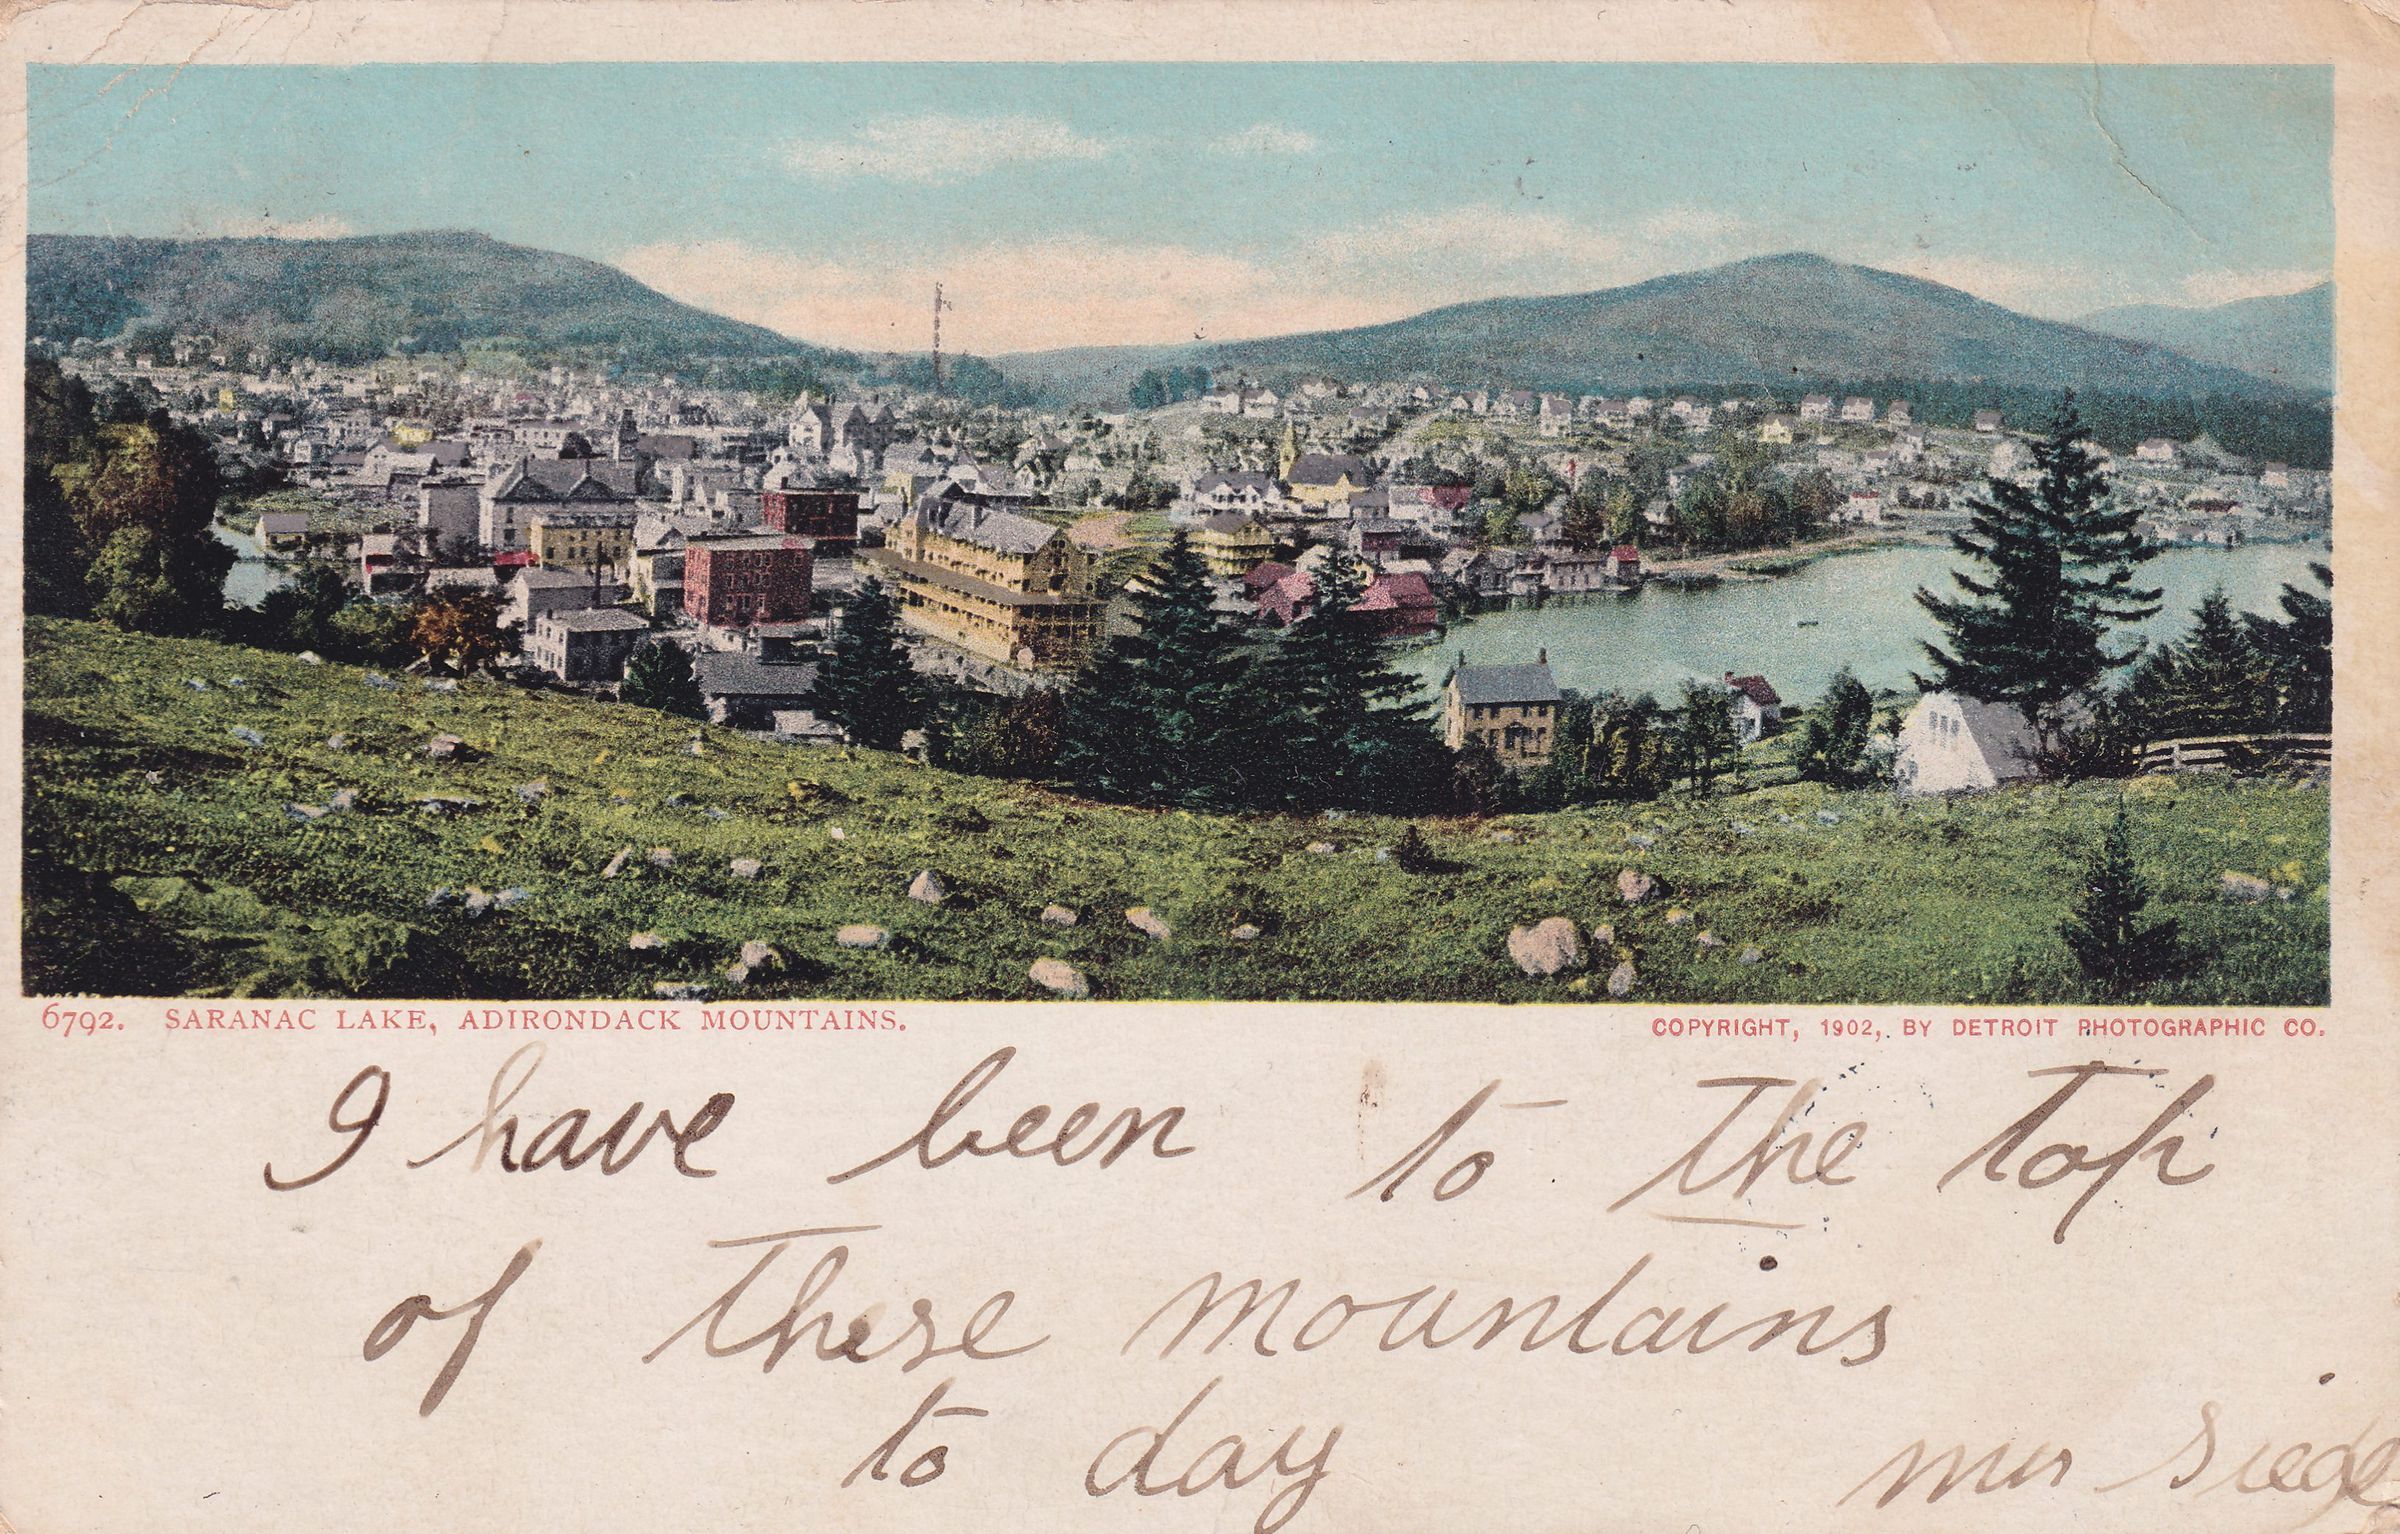 6792. SARANAC LAKE, ADIRONDACK MOUNTAINS.
COPYRIGHT, 1902, BY DETROIT PHOTOGRAPHIC CO.
I have been to the top
of these mountains
to day
mrs